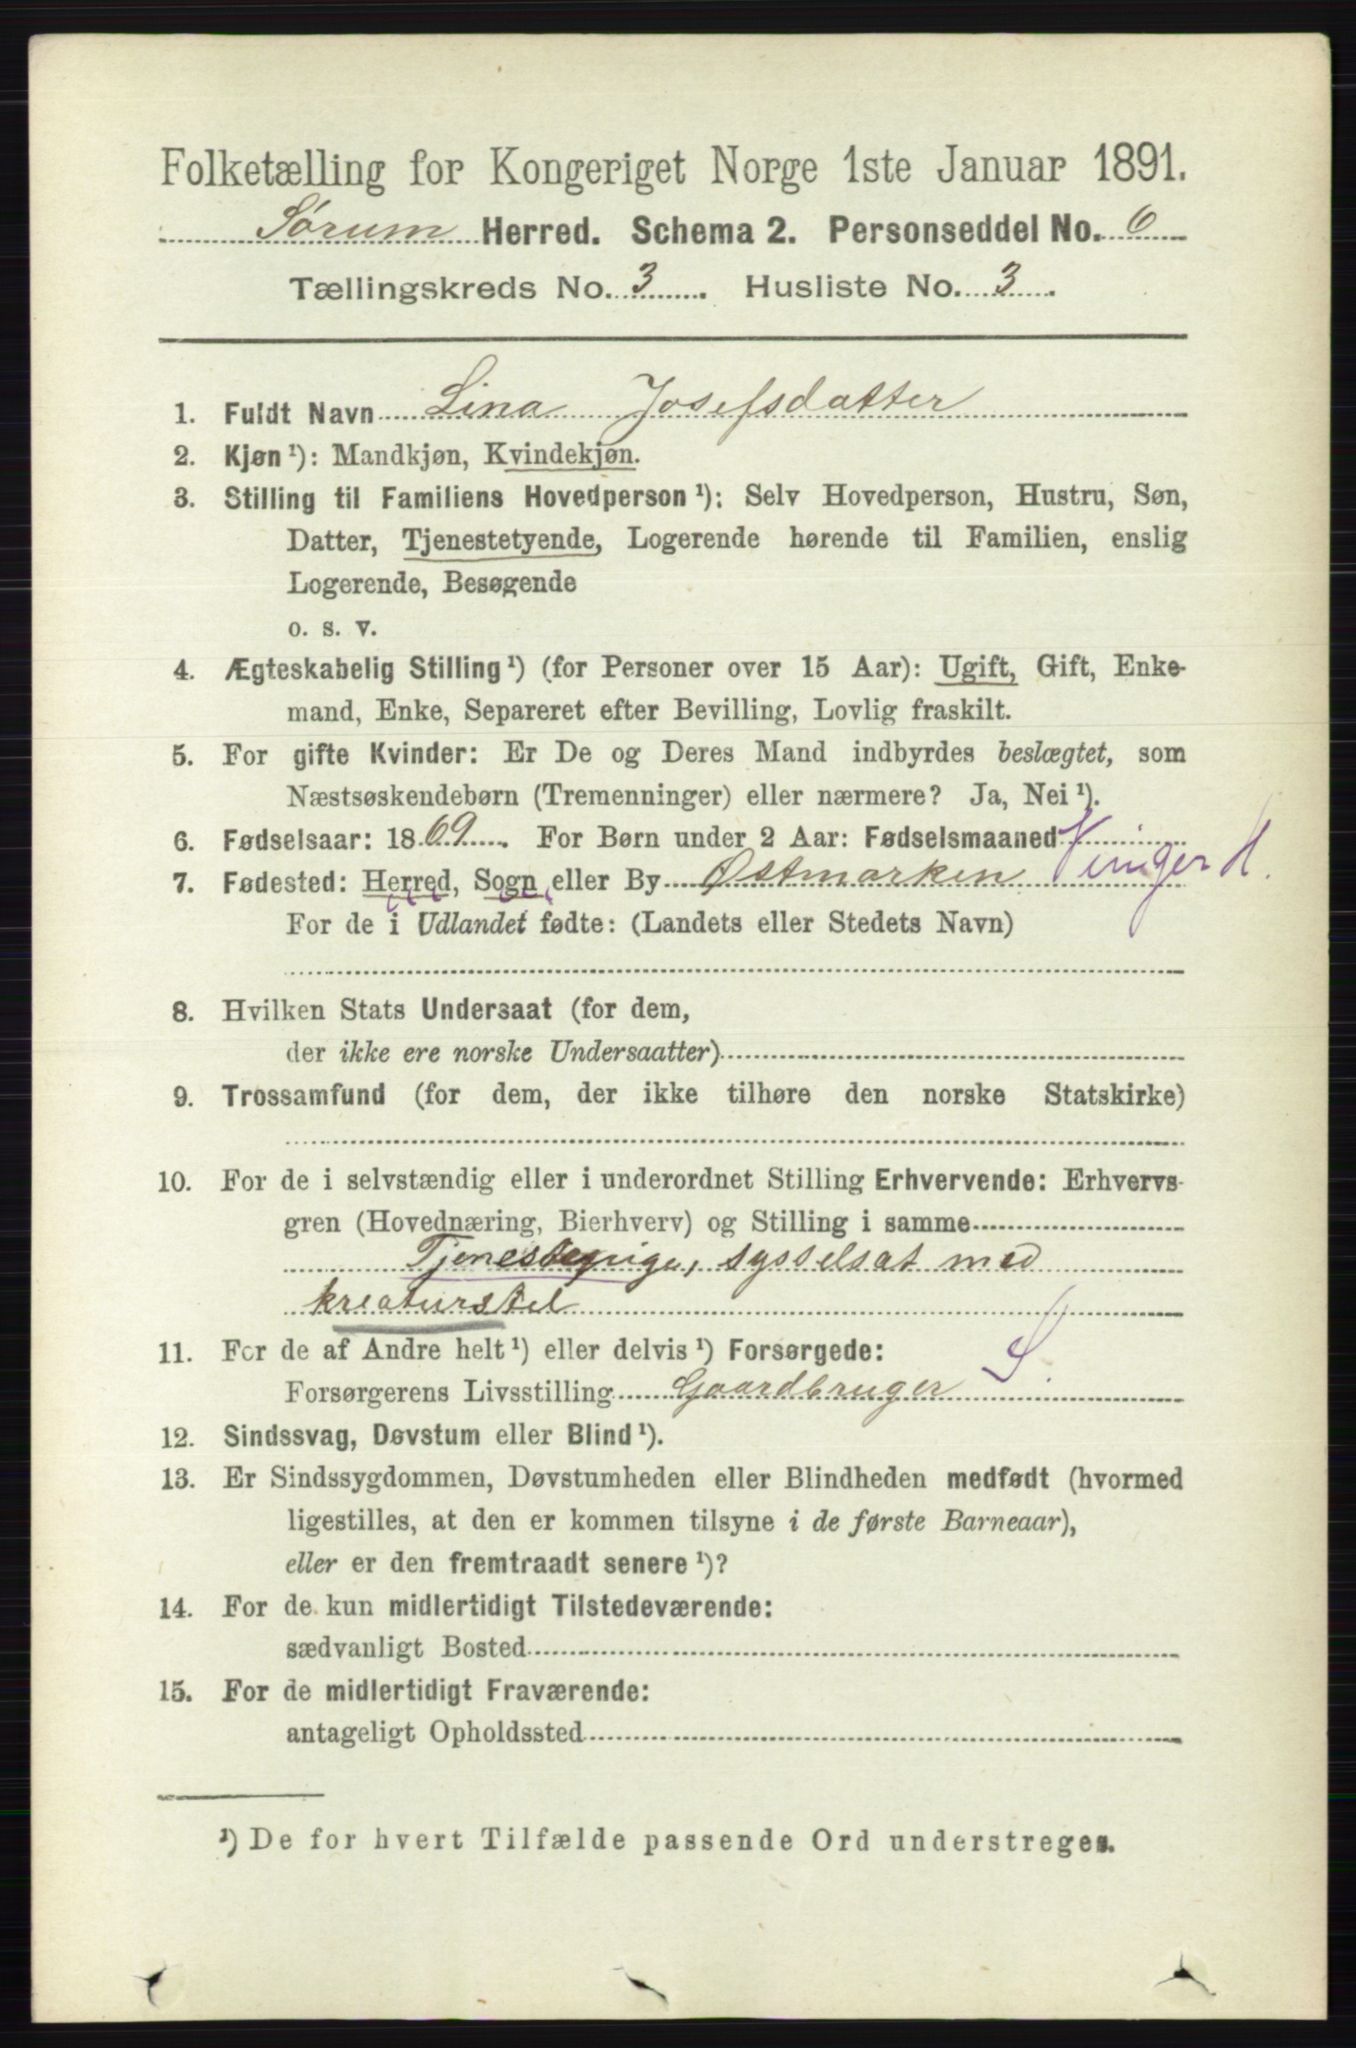 Folketælling for Kongeriget Norge 1ste Januar 1891.
Sørum Herred. Schema 2. Personseddel No. 6
Tællingskreds No. 3. Husliste No. 3.
1. Fuldt Navn Lina Josefsdatter
2. Kjøn ¹): Mandkjøn, Kvindekjøn.
3. Stilling til Familiens Hovedperson ¹): Selv Hovedperson, Hustru, Søn,
Datter, Tjenestetyende, Logerende hørende til Familien, enslig
Logerende, Besøgende
o. s. v.
4. Ægteskabelig Stilling ¹) (for Personer over 15 Aar): Ugift, Gift, Enke-
mand, Enke, Separeret efter Bevilling, Lovlig fraskilt.
5. For gifte Kvinder: Er De og Deres Mand indbyrdes beslægtet, som
Næstsøskendebørn (Tremenninger) eller nærmere? Ja, Nei ¹).
6. Fødselsaar: 1869. For Børn under 2 Aar: Fødselsmaaned
7. Fødested: Herred, Sogn, eller By Østmarken Vinger H.
For de i Udlandet fødte: (Landets eller Stedets Navn)
8. Hvilken Stats Undersaat (for dem,
der ikke ere norske Undersaatter)
9. Trossamfund (for dem, der ikke tilhøre den norske Statskirke)
10. For de i selvstændig eller i underordnet Stilling Erhvervende: Erhvervs-
gren (Hovednæring, Bierhverv) og Stilling i samme
Tjenestepige, sysselsat med
kreaturstel
11. For de af Andre helt ¹) eller delvis ¹) Forsørgede:
Forsørgerens Livsstilling Gaardbruger S.
12. Sindssvag, Døvstum eller Blind ¹).
13. Er Sindssygdommen, Døvstumheden eller Blindheden medfødt (hvormed
ligestilles, at den er kommen tilsyne i de første Barneaar),
eller er den fremtraadt senere ¹)?
14. For de kun midlertidigt Tilstedeværende:
sædvanligt Bosted
15. For de midlertidigt Fraværende:
antageligt Opholdssted
¹) De for hvert Tilfælde passende Ord understreges.